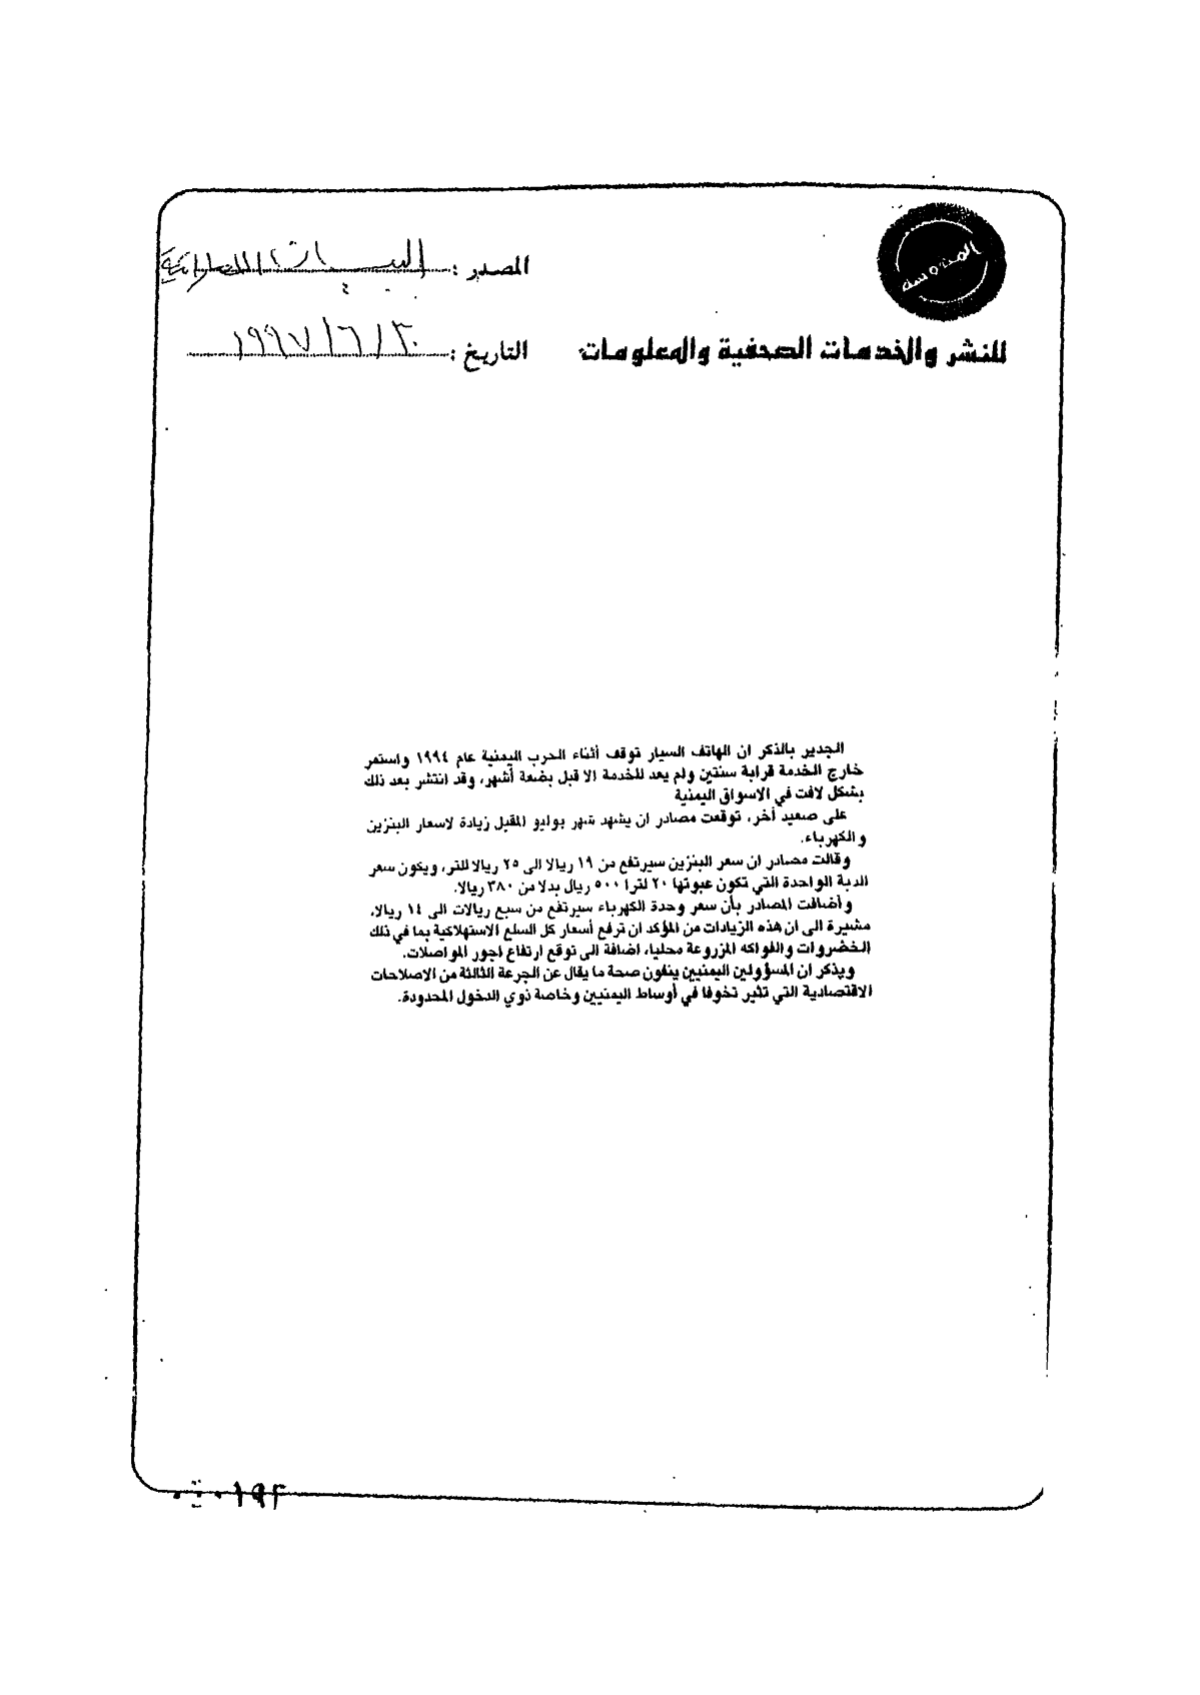 المصدر : البيان الاماراتية
للنشر والخدمات الصحفية والمعلومات
التاريخ : ٣٠ / ٦ / ١٩٩٧
الجدير بالذكر ان الهاتف السيار توقف أثناء الحرب اليمنية عام ١٩٩٤ واستمر
خارج الخدمة قرابة سنتين ولم يعد للخدمة الا قبل بضعة أشهر، وقد انتشر بعد ذلك
بشكل لافت في الاسواق اليمنية
على صعيد أخر، توقعت مصادر ان يشهد شهر يوليو المقبل زيادة لاسعار البنزين
والكهرباء.
وقالت مصادر ان سعر البنزين سيرتفع من ١٩ ريالا الى ٢٥ ريالا للتر، ويكون سعر
الدبة الواحدة التي تكون عبوتها ٢٠ لترا ٥٠٠ ريال بدلا من ٣٨٠ ريالا.
وأضافت المصادر بأن سعر وحدة الكهرباء سيرتفع من سبع ريالات الى ١٤ ريالا،
مشيرة الى ان هذه الزيادات من المؤكد ان ترفع أسعار كل السلع الاستهلاكية بما في ذلك
الخضروات والفواكه المزروعة محليا، اضافة الى توقع ارتفاع اجور المواصلات.
ويذكر ان المسؤولين اليمنيين ينفون صحة ما يقال عن الجرعة الثالثة من الاصلاحات
الاقتصادية التي تثير تخوفا في أوساط اليمنيين وخاصة ذوي الدخول المحدودة.